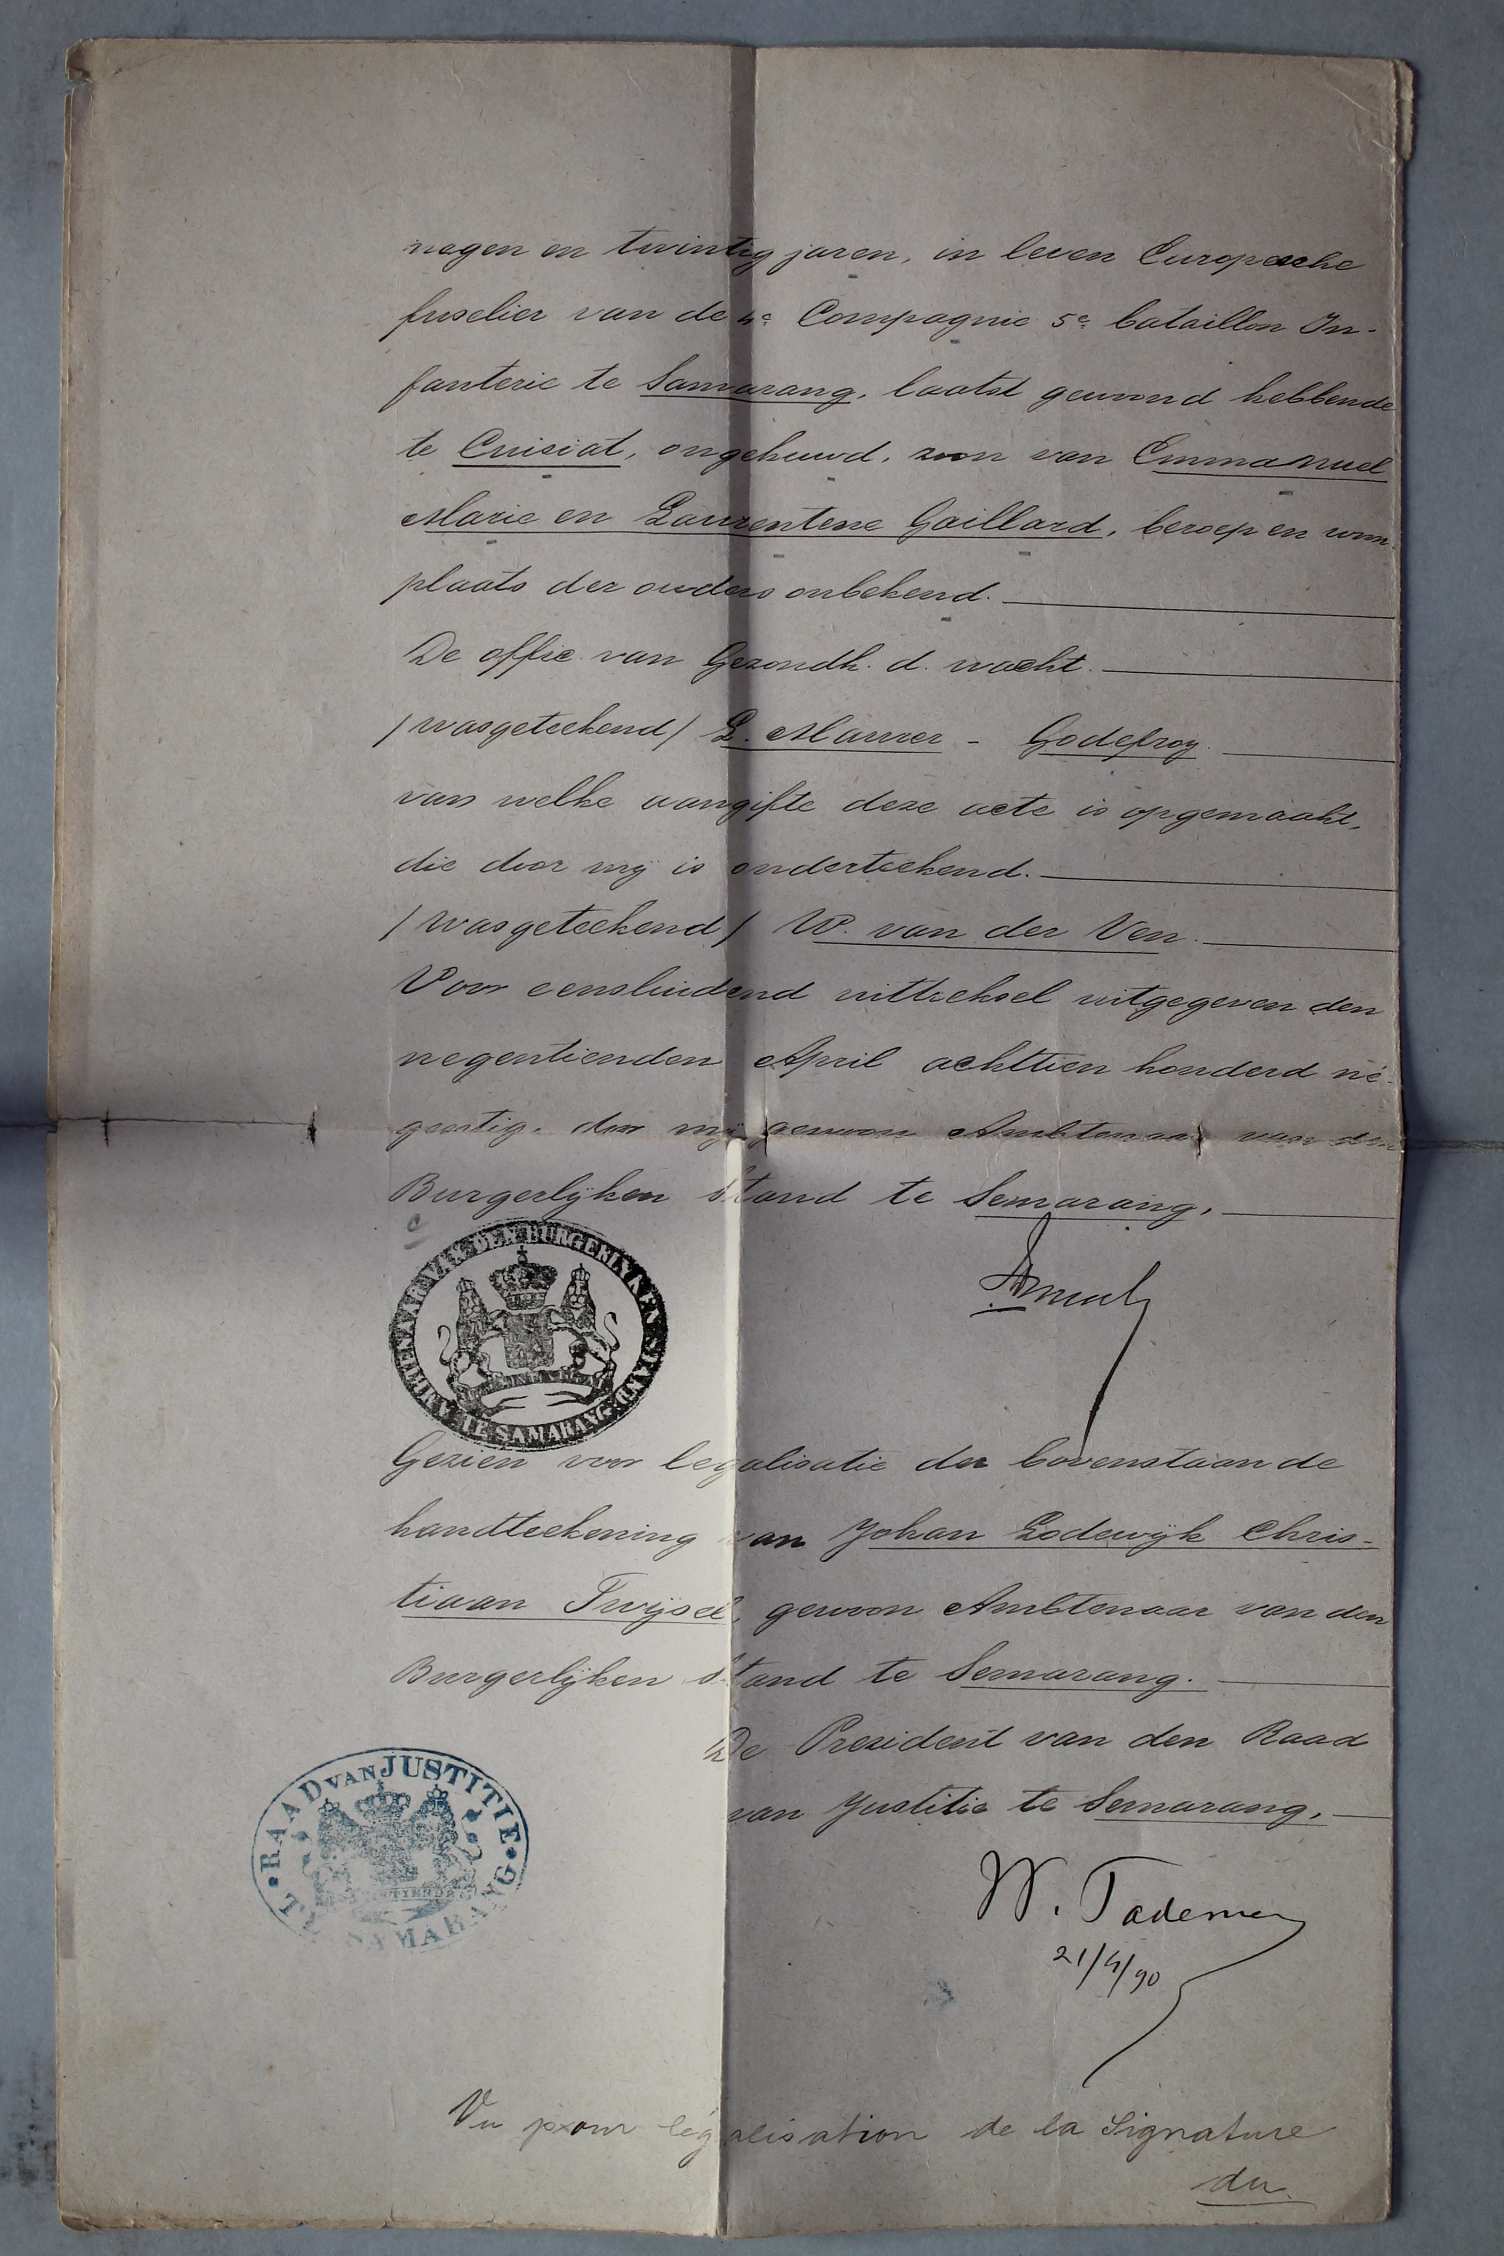 negen en twintig jaren, in leven Europesche
fuselier van de 4e Compagnie 5e bataillon In-
fanterie te Samarang, laatst gewoond hebbende
te Cuisiat, ongehuwd, zoon van Emmanuel
Marie en Laurentene Gaillard, beroep en woon-
plaats der ouders onbekend.
De offic. van Gezondh. d. wacht.
/wasgeteekend/ L. Maurer - Godefroy.
van welke aangifte deze acte is opgemaakt,
die door mij is onderteekend.
/wasgeteekend/ W. van der Ven.
Voor eensluidend uittreksel uitgegeven den
negentienden April achttien honderd ne-
gentig, door mij gewoon Ambtenaar van den
Burgerlijken Stand te Semarang,
AMBTENAAR VAN DEN BURGERLYKEN STAND
TE SAMARANG
Gezien voor legalisatie der bovenstaande
handteekening van Johan Lodewijk Chris-
tiaan Twijsel, gewoon Ambtenaar van den
Burgerlijken Stand te Semarang.
De President van den Raad
van Justitie te Semarang,
RAAD VAN JUSTITIE
TE SAMARANG
W. Tadema
21/4/90
Vu pour légalisation de la Signature
du